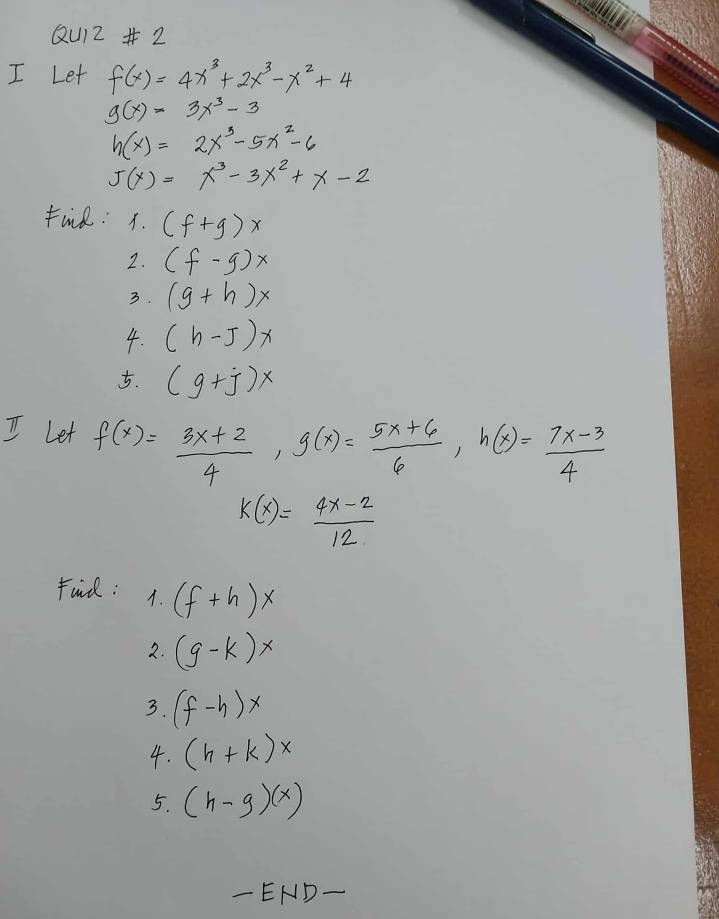 QUIZ # 2
I Let f(x) = 4x³ + 2x³ - x² + 4
g(x) = 3x³ - 3
h(x) = 2x³ - 5x² - 6
J(x) = x³ - 3x² + x - 2
Find: 1. (f+g)x
2. (f-g)x
3. (g+h)x
4. (h-J)x
5. (g+j)x
II Let f(x) = (3x+2)/4, g(x) = (5x+6)/6, h(x) = (7x-3)/4
K(x) = (4x-2)/12
Find: 1. (f+h)x
2. (g-k)x
3. (f-h)x
4. (h+k)x
5. (h-g)(x)
-END-